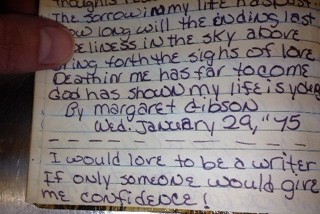 The sorrow in my life has past
how long will the ending last
loneliness in the sky above
bring forth the sighs of love
Death in me has far to come
God has shown my life is young
By margaret Gibson
Wed. January 29, "75
I would love to be a writer
If only someone would give
me confidence!